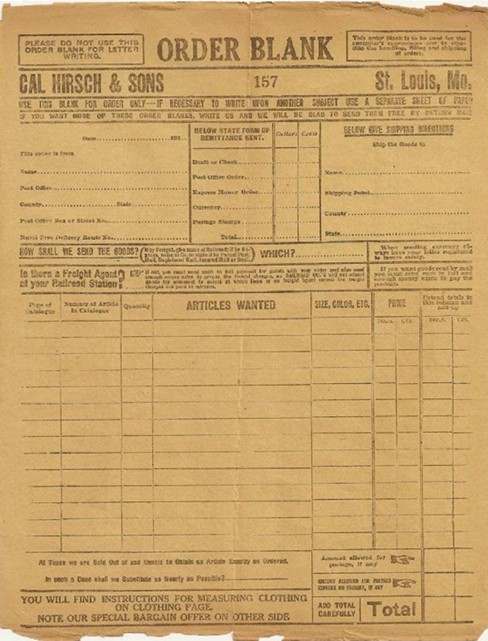 PLEASE DO NOT USE THIS
ORDER BLANK FOR LETTER
WRITING.
ORDER BLANK
This order blank is to be used for the
customer's convenience and to
the handling, filling and
of orders.
CAL HIRSCH & SONS
157
St. Louis, Mo.
USE THIS BLANK FOR ORDER ONLY—IF NECESSARY TO WRITE UPON ANOTHER SUBJECT USE A SEPARATE SHEET OF PAPER
IF YOU WANT MORE OF THESE ORDER BLANKS, WRITE US AND WE WILL BE GLAD TO SEND THEM FREE BY RETURN MAIL
Date 191
This order is from
Name
Post Office
County State
Post Office Box or Street No.
Rural Free Delivery Route No.
BELOW STATE FORM OF
REMITTANCE SENT.
Dollars Cents
Draft or Check
Post Office Order
Express Money Order
Currency
Postage Stamps
Total
BELOW GIVE SHIPPING DIRECTIONS
Ship the Goods to
Name
Shipping Point
County
State
HOW SHALL WE SEND THE GOODS?
WHICH?
When sending currency
have your letter registered
to insure safety.
Is there a Freight Agent
at your Railroad Station?
If you want goods sent by mail
you must send
enough money extra to pay the
postage.
Page of
Catalogue
Number of Article
in Catalogue
Quantity
ARTICLES WANTED
SIZE, COLOR, ETC.
PRICE
Extend totals in
this column and
add up
At Times we are Sold Out of and Unable to Obtain an Article Exactly as Ordered.
In such a Case shall we Substitute as Nearly as Possible?
Amount allowed for
postage, if any
AMOUNT ALLOWED FOR
ON FREIGHT, IF ANY
YOU WILL FIND INSTRUCTIONS FOR MEASURING CLOTHING
ON CLOTHING PAGE.
NOTE OUR SPECIAL BARGAIN OFFER ON OTHER SIDE
ADD TOTAL
CAREFULLY
Total